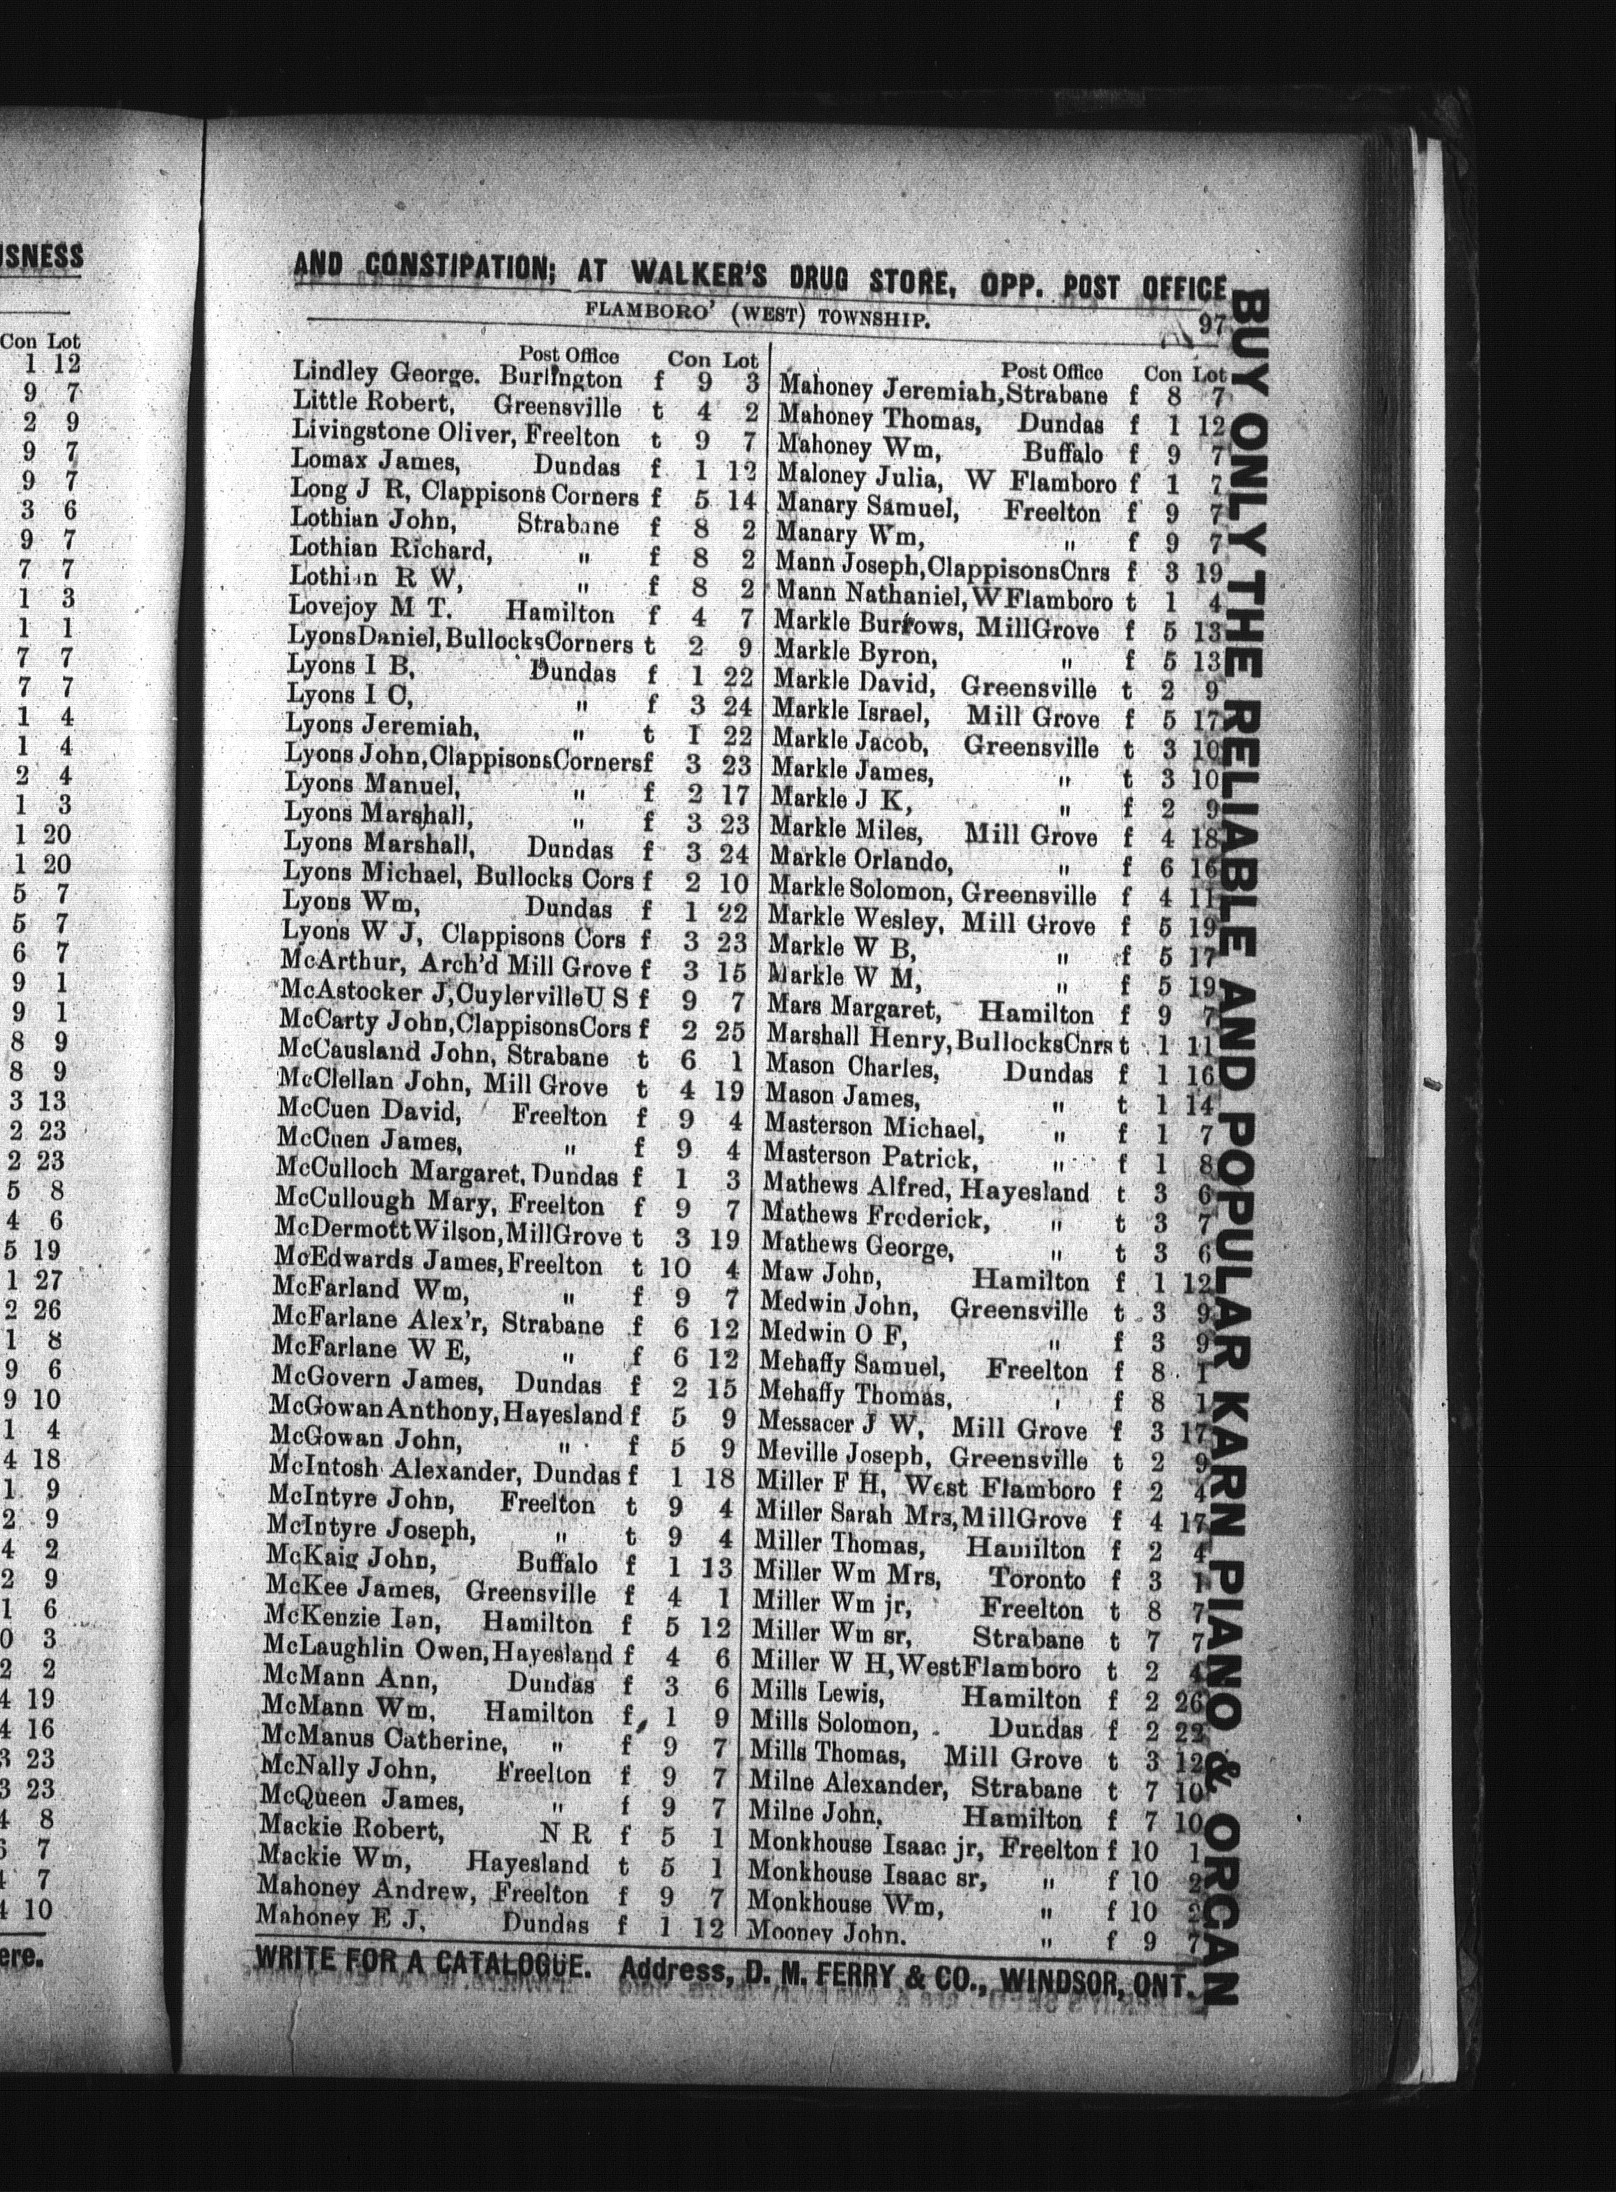 USNESS
Con Lot
1 12
9 7
2 9
9 7
9 7
3 6
9 7
7 7
1 3
1 1
7 7
7 7
1 4
1 4
2 4
1 3
1 20
1 20
5 7
5 7
6 7
9 1
9 1
8 9
8 9
3 13
2 23
2 23
5 8
4 6
5 19
1 27
2 26
1 8
9 6
9 10
1 4
4 18
1 9
2 9
4 2
2 9
1 6
0 3
2 2
4 19
4 16
3 23
3 23
4 8
7
7
4 10
ere.
AND CONSTIPATION; AT WALKER'S DRUG STORE, OPP. POST OFFICE
FLAMBORO' (WEST) TOWNSHIP.
97
Post Office Con Lot
Lindley George. Burlington f 9 3
Little Robert, Greensville t 4 2
Livingstone Oliver, Freelton t 9 7
Lomax James, Dundas f 1 12
Long J R, Clappisons Corners f 5 14
Lothian John, Strabane f 8 2
Lothian Richard, " f 8 2
Lothian R W, " f 8 2
Lovejoy M T. Hamilton f 4 7
LyonsDaniel,BullocksCorners t 2 9
Lyons I B, Dundas f 1 22
Lyons I C, " f 3 24
Lyons Jeremiah, " t 1 22
Lyons John,ClappisonsCornersf 3 23
Lyons Manuel, " f 2 17
Lyons Marshall, " f 3 23
Lyons Marshall, Dundas f 3 24
Lyons Michael, Bullocks Cors f 2 10
Lyons Wm, Dundas f 1 22
Lyons W J, Clappisons Cors f 3 23
McArthur, Arch'd Mill Grove f 3 15
McAstocker J,CuylervilleU S f 9 7
McCarty John,ClappisonsCors f 2 25
McCausland John, Strabane t 6 1
McClellan John, Mill Grove t 4 19
McCuen David, Freelton f 9 4
McCuen James, " f 9 4
McCulloch Margaret, Dundas f 1 3
McCullough Mary, Freelton f 9 7
McDermottWilson,MillGrove t 3 19
McEdwards James,Freelton t 10 4
McFarland Wm, " f 9 7
McFarlane Alex'r, Strabane f 6 12
McFarlane W E, " f 6 12
McGovern James, Dundas f 2 15
McGowanAnthony,Hayesland f 5 9
McGowan John, " f 5 9
McIntosh Alexander, Dundas f 1 18
McIntyre John, Freelton t 9 4
McIntyre Joseph, " t 9 4
McKaig John, Buffalo f 1 13
McKee James, Greensville f 4 1
McKenzie Ian, Hamilton f 5 12
McLaughlin Owen,Hayesland f 4 6
McMann Ann, Dundas f 3 6
McMann Wm, Hamilton f 1 9
McManus Catherine, " f 9 7
McNally John, Freelton f 9 7
McQueen James, " f 9 7
Mackie Robert, N R f 5 1
Mackie Wm, Hayesland t 5 1
Mahoney Andrew, Freelton f 9 7
Mahoney E J, Dundas f 1 12
Post Office Con Lot
Mahoney Jeremiah,Strabane f 8 7
Mahoney Thomas, Dundas f 1 12
Mahoney Wm, Buffalo f 9 7
Maloney Julia, W Flamboro f 1 7
Manary Samuel, Freelton f 9 7
Manary Wm, " f 9 7
Mann Joseph,ClappisonsCnrs f 3 19
Mann Nathaniel,WFlamboro t 1 4
Markle Burrows, MillGrove f 5 13
Markle Byron, " f 5 13
Markle David, Greensville t 2 9
Markle Israel, Mill Grove f 5 17
Markle Jacob, Greensville t 3 10
Markle James, " t 3 10
Markle J K, " f 2 9
Markle Miles, Mill Grove f 4 18
Markle Orlando, " f 6 16
Markle Solomon, Greensville f 4 11
Markle Wesley, Mill Grove f 5 19
Markle W B, " f 5 17
Markle W M, " f 5 19
Mars Margaret, Hamilton f 9 7
Marshall Henry,BullocksCnrs t 1 11
Mason Charles, Dundas f 1 16
Mason James, " t 1 14
Masterson Michael, " f 1 7
Masterson Patrick, " f 1 8
Mathews Alfred, Hayesland t 3 6
Mathews Frederick, " t 3 7
Mathews George, " t 3 6
Maw John, Hamilton f 1 12
Medwin John, Greensville t 3 9
Medwin O F, " f 3 9
Mehaffy Samuel, Freelton f 8 1
Mehaffy Thomas, " f 8 1
Messacer J W, Mill Grove f 3 17
Meville Joseph, Greensville t 2 9
Miller F H, West Flamboro f 2 4
Miller Sarah Mrs,MillGrove f 4 17
Miller Thomas, Hamilton f 2 4
Miller Wm Mrs, Toronto f 3 1
Miller Wm jr, Freelton t 8 7
Miller Wm sr, Strabane t 7 7
Miller W H,WestFlamboro t 2 4
Mills Lewis, Hamilton f 2 26
Mills Solomon, Dundas f 2 22
Mills Thomas, Mill Grove t 3 12
Milne Alexander, Strabane t 7 10
Milne John, Hamilton f 7 10
Monkhouse Isaac jr, Freelton f 10 1
Monkhouse Isaac sr, " f 10 2
Monkhouse Wm, " f 10 2
Mooney John. " f 9 7
WRITE FOR A CATALOGUE. Address, D. M. FERRY & CO., WINDSOR, ONT.
BUY ONLY THE RELIABLE AND POPULAR KARN PIANO & ORGAN